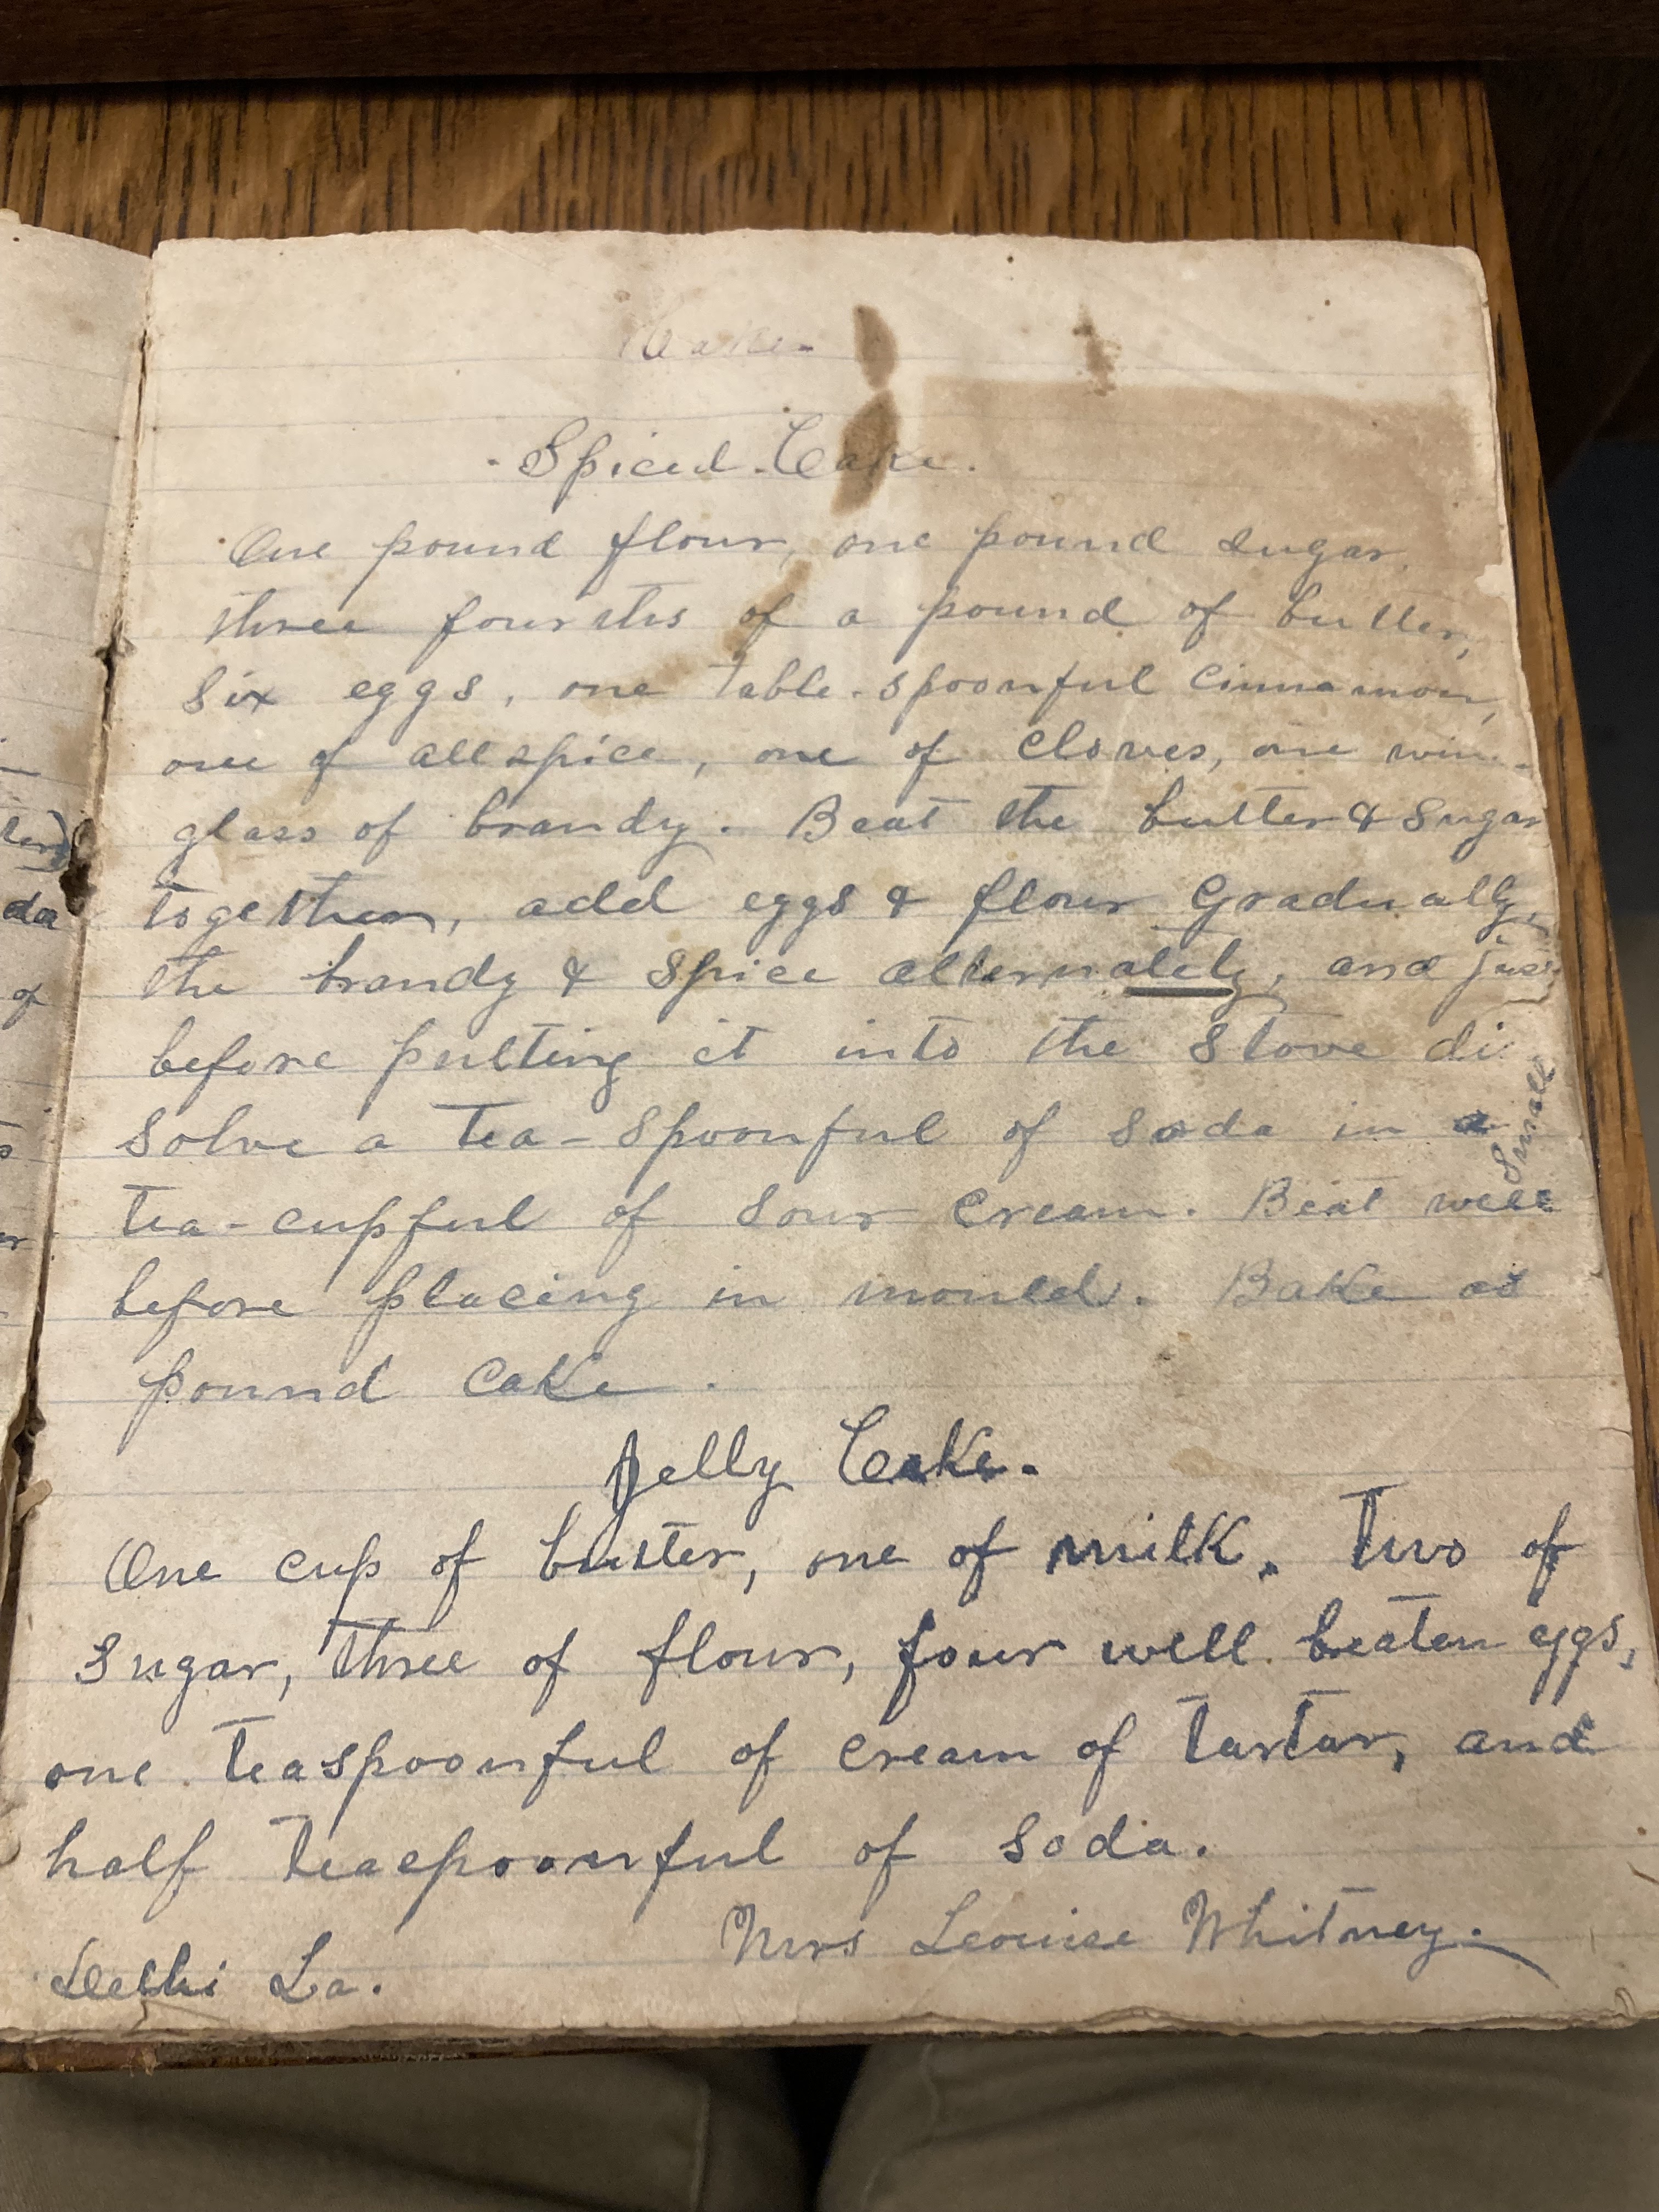 Cake.
Spiced Cake.
One pound flour, one pound sugar,
three fourths of a pound of butter,
six eggs, one table-spoonful cinnamon,
one of allspice, one of cloves, one wine-
glass of brandy. Beat the butter & sugar
together, add eggs & flour gradually,
the brandy & spice alternately, and just
before putting it into the stove dis
solve a tea-spoonful of soda in a
small
tea-cupful of sour cream. Beat well
before placing in mould. Bake as
pound cake.
Jelly Cake.
One cup of butter, one of milk. Two of
sugar, three of flour, four well beaten eggs,
one teaspoonful of cream of tartar, and
half teaspoonful of soda.
Mrs Louise Whitney.
Delhi La.
da
of